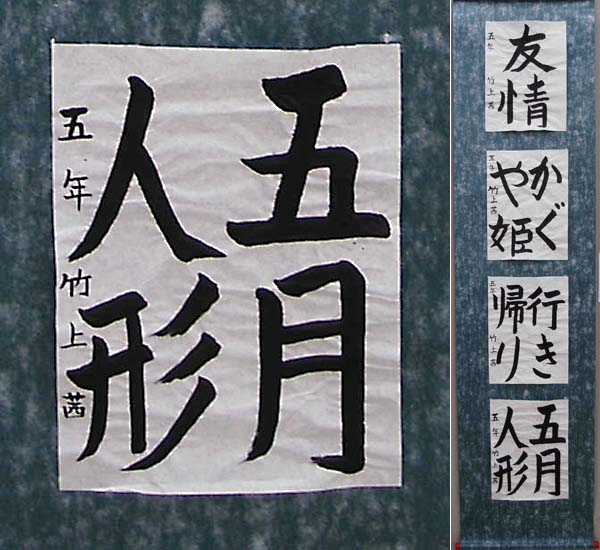 五月
人形
五年 竹上 茜
友情
五年 竹上 茜
かぐ
や姫
五年 竹上 茜
行き
帰り
五年 竹上 茜
五月
人形
五年 竹上 茜